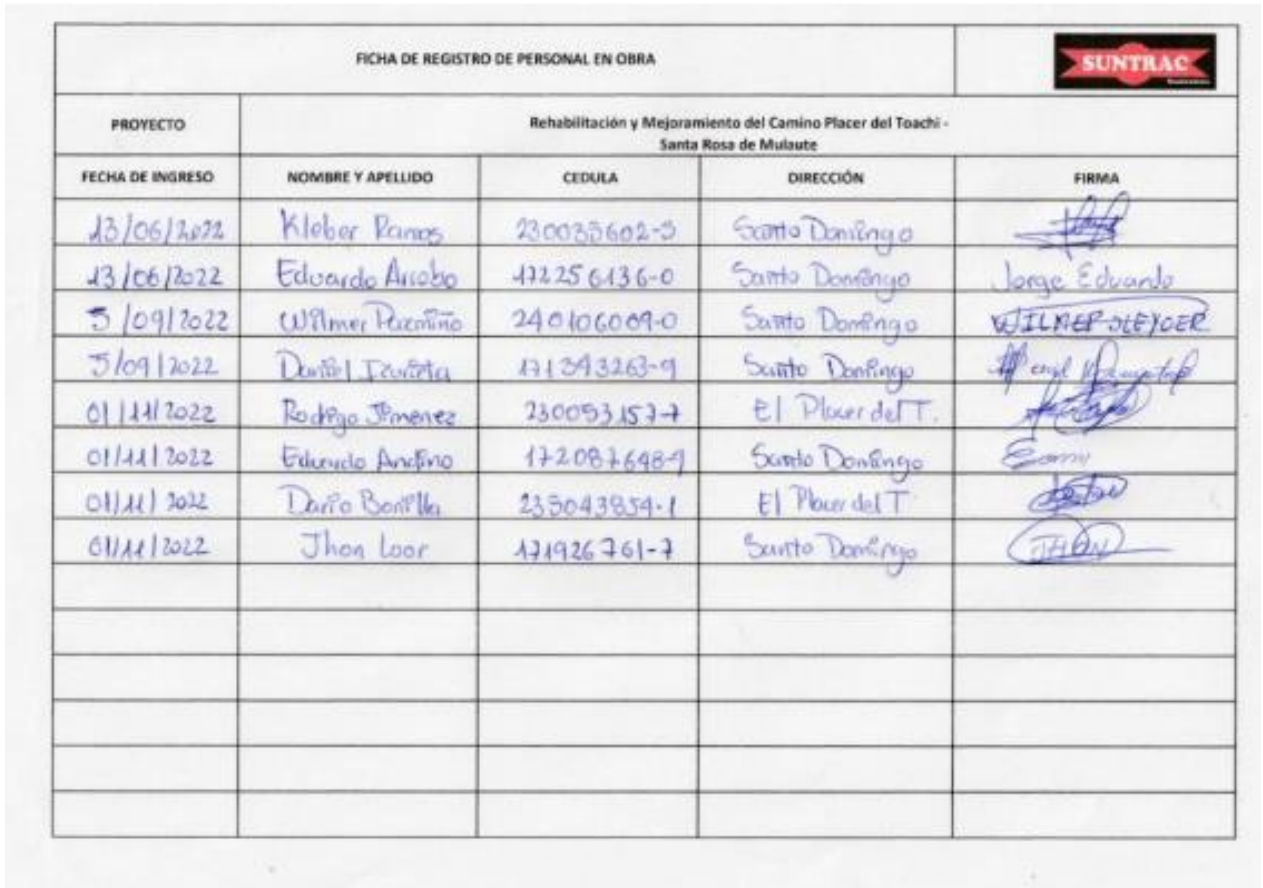 FICHA DE REGISTRO DE PERSONAL EN OBRA
SUNTRAC
PROYECTO
Rehabilitación y Mejoramiento del Camino Placer del Toachi -
Santa Rosa de Mulaute
FECHA DE INGRESO NOMBRE Y APELLIDO CEDULA DIRECCIÓN FIRMA
13/06/2022 Kleber Ramos Santo Domingo
13/06/2022 Eduardo Arrobo 172256136-0 Santo Domingo Jorge Eduardo
5/09/2022 Wilmer Pazmiño 240106009-0 Santo Domingo WILMER
5/09/2022 Daniel Santo Domingo
01/11/2022 Rodrigo Jimenez 230053157-7 El Placer del T.
01/11/2022 Eduardo Andino Santo Domingo
01/11/2022 Dario Bonilla El Placer del T
01/11/2022 Jhon Loor 171926761-7 Santo Domingo JHON